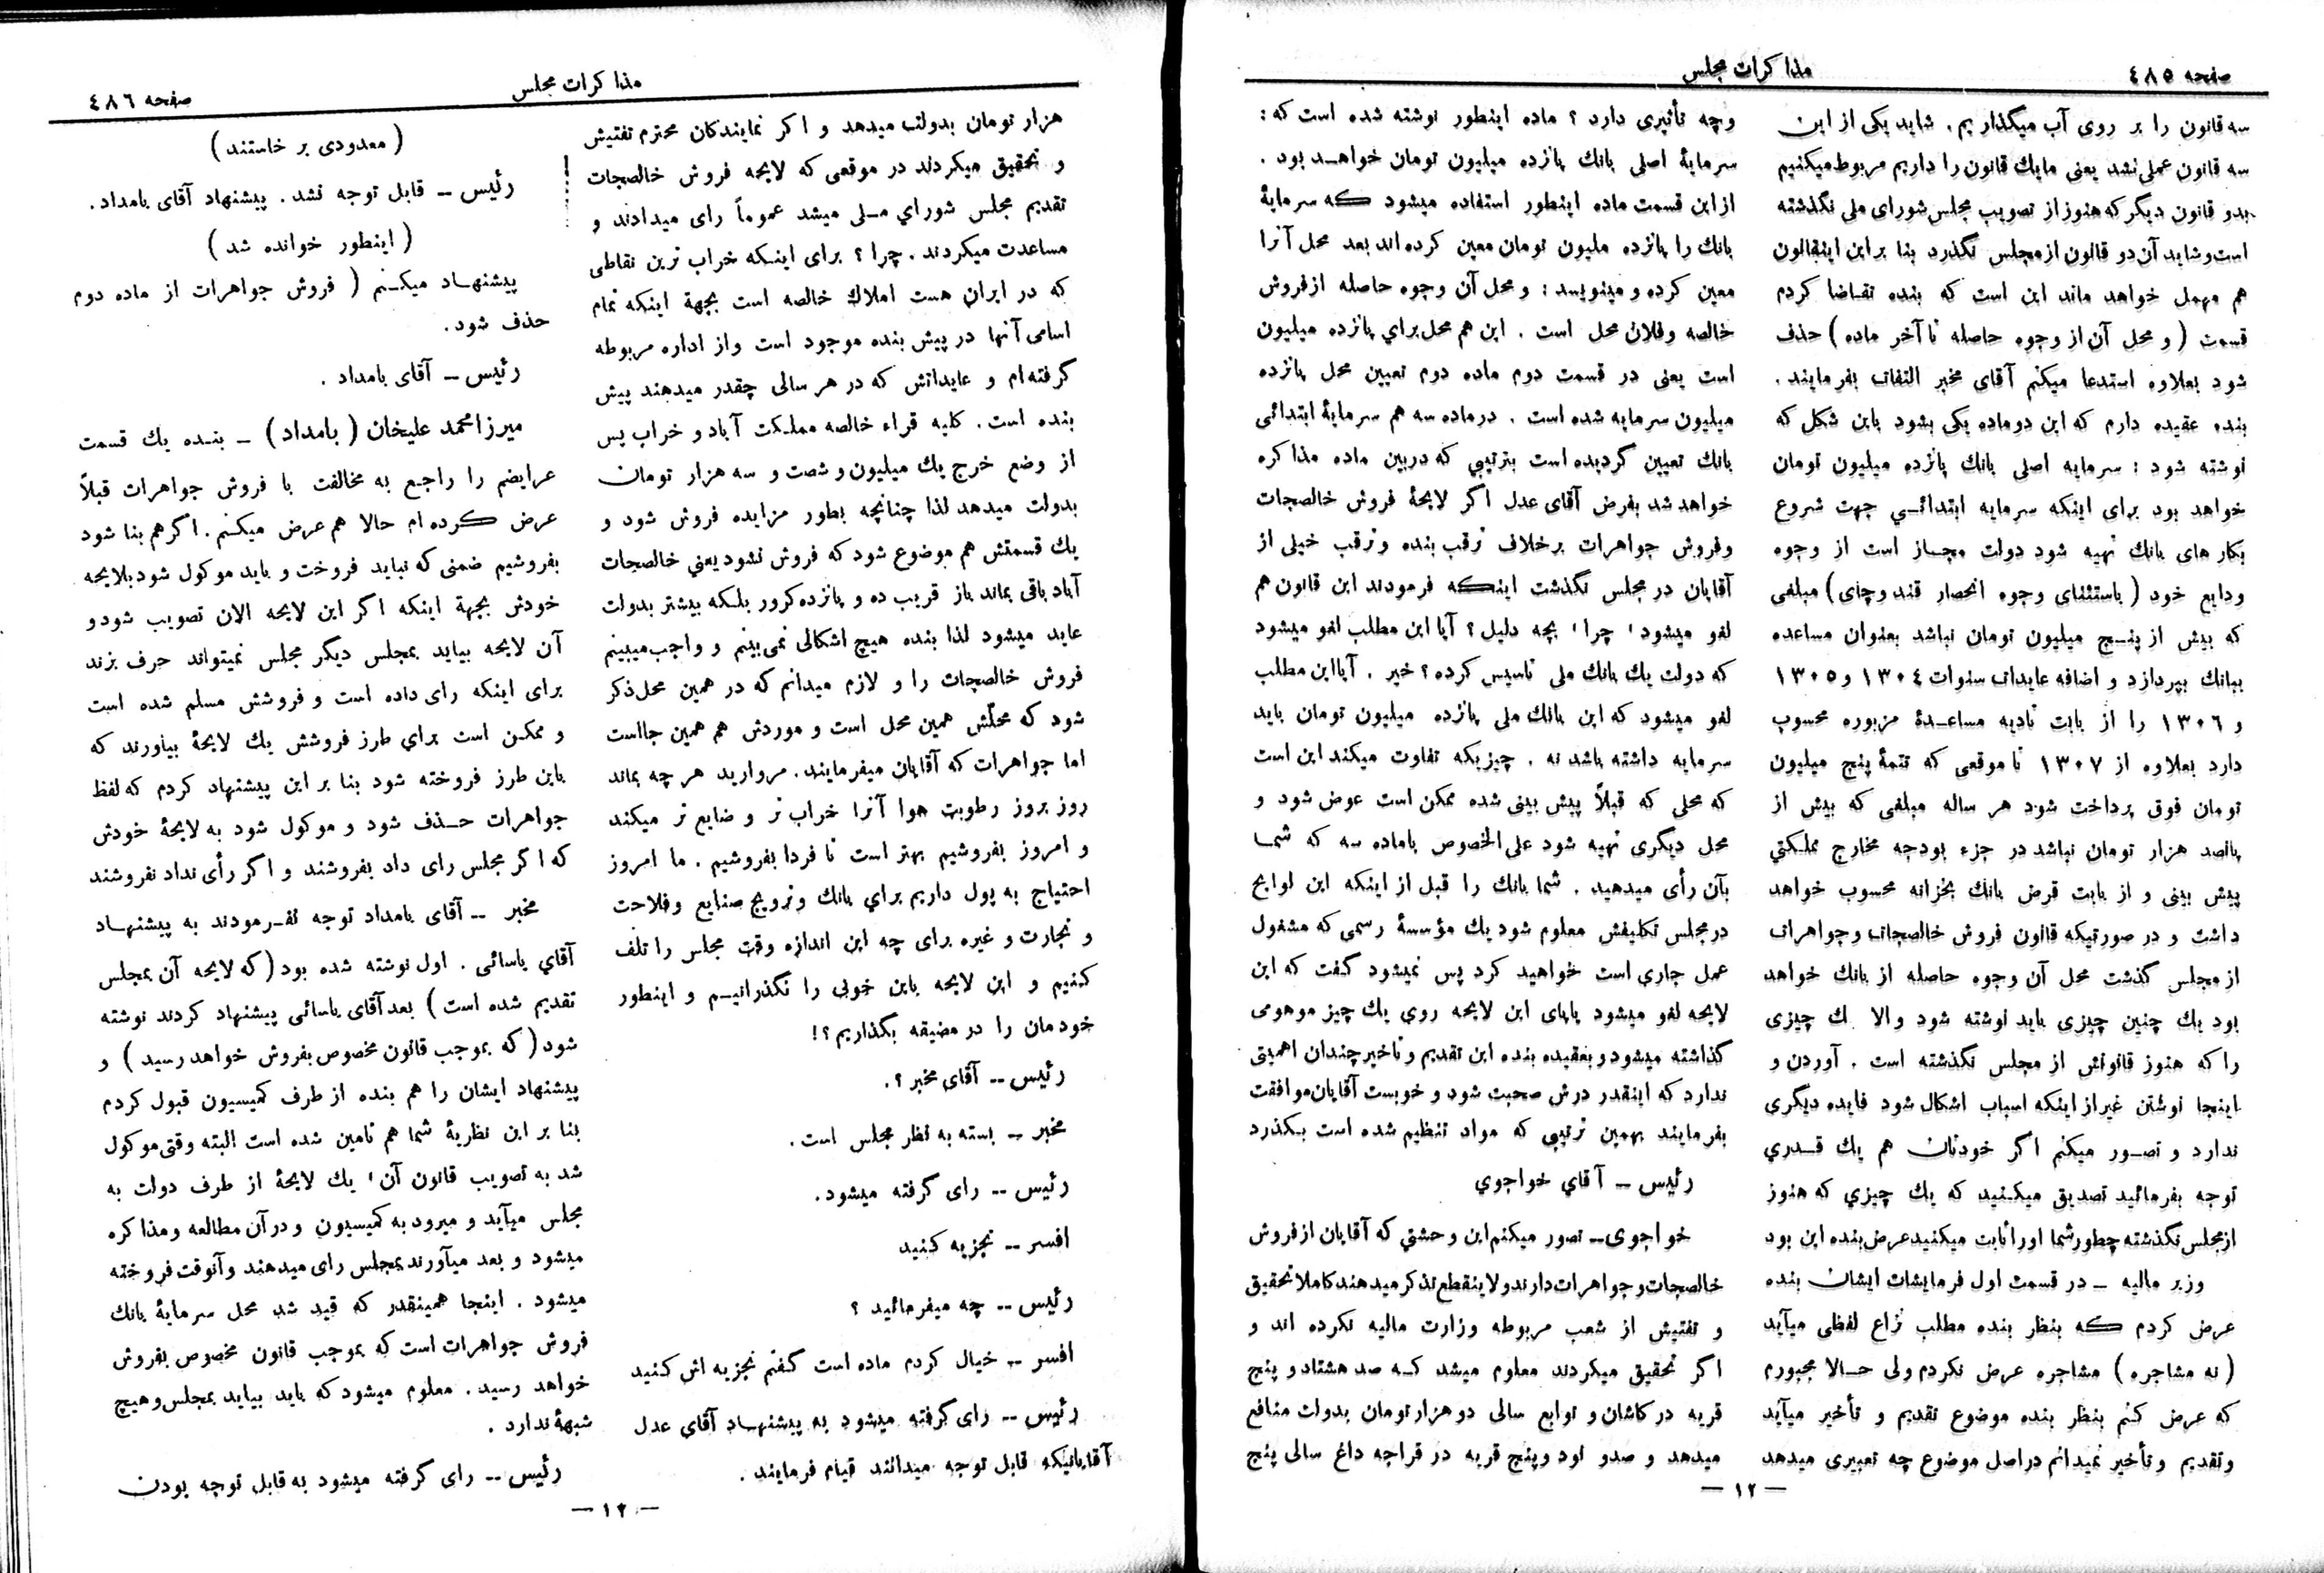 صفحه ٤٨٥
مذاکرات مجلس
سه قانون را بر روی آب میگذاریم. شاید یکی از این
سه قانون عملی نشد یعنی مایك قانون را داریم مربوط میکنیم
بدو قانون دیگر که هنوز از تصویب مجلس شورای ملی نگذشته
است و شاید آن دو قانون از مجلس نگذرد بنا بر این اینقانون
هم مهمل خواهد ماند این است که بنده تقاضا کردم
قسمت (و محل آن از وجوه حاصله تا آخر ماده) حذف
شود بعلاوه استدعا میکنم آقای مخبر التفات بفرمایند.
بنده عقیده دارم که این دو ماده یکی بشود باین شکل که
نوشته شود : سرمایه اصلی بانك پانزده میلیون تومان
خواهد بود برای اینکه سرمایه ابتدائی جهت شروع
بکارهای بانك تهیه شود دولت مجاز است از وجوه
ودایع خود (باستثنای وجوه انحصار قند و چای) مبلغی
که بیش از پنج میلیون تومان نباشد بعنوان مساعده
ببانك بپردازد و اضافه عایدات سنوات ١٣٠٤ و ١٣٠٥
و ١٣٠٦ را از بابت تادیه مساعدهٔ مزبوره محسوب
دارد بعلاوه از ١٣٠٧ تا موقعی که تتمهٔ پنج میلیون
تومان فوق پرداخت شود هر ساله مبلغی که بیش از
پانصد هزار تومان نباشد در جزء بودجه مخارج مملکتی
پیش بینی و از بابت قرض بانك بخزانه محسوب خواهد
داشت و در صورتیکه قانون فروش خالصجات و جواهرات
از مجلس گذشت محل آن وجوه حاصله از بانك خواهد
بود یك چنین چیزی باید نوشته شود والا ك چیزی
را که هنوز قانونش از مجلس نگذشته است . آوردن و
اینجا نوشتن غیر از اینکه اسباب اشکال شود فایده دیگری
ندارد و تصور میکنم اگر خودتان هم یك قدری
توجه بفرمائید تصدیق میکنید که یك چیزي که هنوز
از مجلس نگذشته چطور شما او را ثابت میکنید عرض بنده این بود
وزیر مالیه ــ در قسمت اول فرمایشات ایشان بنده
عرض کردم که بنظر بنده مطلب نزاع لفظی میآید
(نه مشاجره) مشاجره عرض نکردم ولی حالا مجبورم
که عرض کنم بنظر بنده موضوع تقدیم و تأخیر میآید
و تقدیم و تأخیر نمیدانم در اصل موضوع چه تعبیری میدهد
و چه تأثیری دارد ؟ ماده اینطور نوشته شده است که :
سرمایهٔ اصلی بانك پانزده میلیون تومان خواهد بود .
از این قسمت ماده اینطور استفاده میشود که سرمایهٔ
بانك را پانزده ملیون تومان معین کرده اند بعد محل آنرا
معین کرده و مینویسد : و محل آن وجوه حاصله از فروش
خالصه و فلان محل است . این هم محل براي پانزده میلیون
است یعنی در قسمت دوم ماده دوم تعیین محل پانزده
میلیون سرمایه شده است . در ماده سه هم سرمایهٔ ابتدائی
بانك تعیین گردیده است بترتیبی که در بین ماده مذاکره
خواهد شد بفرض آقای عدل اگر لایحهٔ فروش خالصجات
و فروش جواهرات برخلاف ترقب بنده و ترقب خیلی از
آقایان در مجلس نگذشت اینکه فرمودند این قانون هم
لغو میشود ، چرا ، بچه دلیل ؟ آیا این مطلب لغو میشود
که دولت یك بانك ملی تاسیس کرده ؟ خیر . آیا این مطلب
لغو میشود که این بانك ملی پانزده میلیون تومان باید
سرمایه داشته باشد نه . چیزیکه تفاوت میکند این است
که محلی که قبلاً پیش بینی شده ممکن است عوض شود و
محل دیگری تهیه شود علی الخصوص با ماده سه که شما
بآن رأی میدهید . شما بانك را قبل از اینکه این لوایح
در مجلس تکلیفش معلوم شود یك مؤسسهٔ رسمی که مشغول
عمل جاری است خواهید کرد پس نمیشود گفت که این
لایحه لغو میشود یا پای این لایحه روی یك چیز موهومی
گذاشته میشود و بعقیده بنده این تقدیم و تاخیر چندان اهمیتی
ندارد که اینقدر درش صحبت شود و خوبست آقایان موافقت
بفرمایند بهمین ترتیبی که مواد تنظیم شده است بگذرد
رئیس ــ آقاي خواجوي
خواجوی ــ تصور میکنم این وحشتی که آقایان از فروش
خالصجات و جواهرات دارند و لا ینقطع تذکر میدهند کاملا تحقیق
و تفتیش از شعب مربوطه وزارت مالیه نکرده اند و
اگر تحقیق میکردند معلوم میشد که صد هشتاد و پنج
قریه در کاشان و توابع سالی دو هزار تومان بدولت منافع
میدهد و صدو نود و پنج قریه در قراجه داغ سالی پنج
— ١٢ —
مذاکرات مجلس
صفحه ٤٨٦
هزار تومان بدولت میدهد و اگر نمایندکان محترم تفتیش
و تحقیق میکردند در موقعی که لایحه فروش خالصجات
تقدیم مجلس شورای ملی میشد عموماً رای میدادند و
مساعدت میکردند . چرا ؟ برای اینکه خراب ترین نقاطی
که در ایران هست املاك خالصه است بجهة اینکه تمام
اسامی آنها در پیش بنده موجود است و از اداره مربوطه
گرفته ام و عایداتش که در هر سالی چقدر میدهند پیش
بنده است . کلیه قراء خالصه مملکت آباد و خراب پس
از وضع خرج یك میلیون و شصت و سه هزار تومان
بدولت میدهد لذا چنانچه بطور مزایده فروش شود و
یك قسمتش هم موضوع شود که فروش نشود یعنی خالصجات
آباد باقی بماند باز قریب ده و پانزده کرور بلکه بیشتر بدولت
عاید میشود لذا بنده هیچ اشکالی نمی بینم و واجب میبینم
فروش خالصجات را و لازم میدانم که در همین محل ذکر
شود که محلّش همین محل است و موردش هم همین جااست
اما جواهرات که آقایان میفرمایند . مروارید هر چه بماند
روز بروز رطوبت هوا آنرا خراب تر و ضایع تر میکند
و امروز بفروشیم بهتر است تا فردا بفروشیم . ما امروز
احتیاج به پول داریم براي بانك و ترویج صنایع و فلاحت
و تجارت و غیره برای چه این اندازه وقت مجلس را تلف
کنیم و این لایحه باین خوبی را نگذرانیم و اینطور
خودمان را در مضیقه بگذاریم ؟!
رئیس -- آقای مخبر ؟.
مخبر -- بسته به نظر مجلس است .
رئیس -- رای گرفته میشود .
افسر -- تجزیه کنید
رئیس -- چه میفرمائید ؟
افسر -- خیال کردم ماده است گفتم تجزیه اش کنید
رئیس -- رای گرفته میشود به پیشنهاد آقاي عدل
آقایانیکه قابل توجه میدانند قیام فرمایند .
(معدودی بر خاستند)
رئیس ــ قابل توجه نشد . پیشنهاد آقای بامداد .
(اینطور خوانده شد)
پیشنهاد میکنم (فروش جواهرات از ماده دوم
حذف شود .
رئیس ــ آقای بامداد .
میرزا محمد علیخان (بامداد) ــ بنده یك قسمت
عرایضم را راجع به مخالفت با فروش جواهرات قبلاً
عرض کرده ام حالا هم عرض میکنم . اگر هم بنا شود
بفروشیم ضمنی که نباید فروخت و باید موکول شود بلایحه
خودش بجهة اینکه اگر این لایحه الان تصویب شود و
آن لایحه بیاید بمجلس دیگر مجلس نمیتواند حرف بزند
برای اینکه رای داده است و فروشش مسلم شده است
و ممکن است برای طرز فروشش یك لایحهٔ بیاورند که
باین طرز فروخته شود بنا بر این پیشنهاد کردم که لفظ
جواهرات حذف شود و موکول شود به لایحهٔ خودش
که اگر مجلس رای داد بفروشند و اگر رأی نداد نفروشند
مخبر -- آقای بامداد توجه نفرمودند به پیشنهاد
آقاي یاسائی . اول نوشته شده بود (که لایحه آن بمجلس
تقدیم شده است) بعد آقای یاسائی پیشنهاد کردند نوشته
شود (که بموجب قانون مخصوص بفروش خواهد رسید) و
پیشنهاد ایشان را هم بنده از طرف کمیسیون قبول کردم
بنا بر این نظریهٔ شما هم تامین شده است البته وقتی موکول
شد به تصویب قانون آن ، یك لایحهٔ از طرف دولت به
مجلس میآید و میرود به کمیسیون و در آن مطالعه و مذاکره
میشود و بعد میآورند بمجلس رای میدهند و آنوقت فروخته
میشود . اینجا همینقدر که قید شد محل سرمایهٔ بانك
فروش جواهرات است که بموجب قانون مخصوص بفروش
خواهد رسید . معلوم میشود که باید بیاید بمجلس و هیچ
شبههٔ ندارد .
رئیس -- رای گرفته میشود به قابل توجه بودن
— ١٢ —